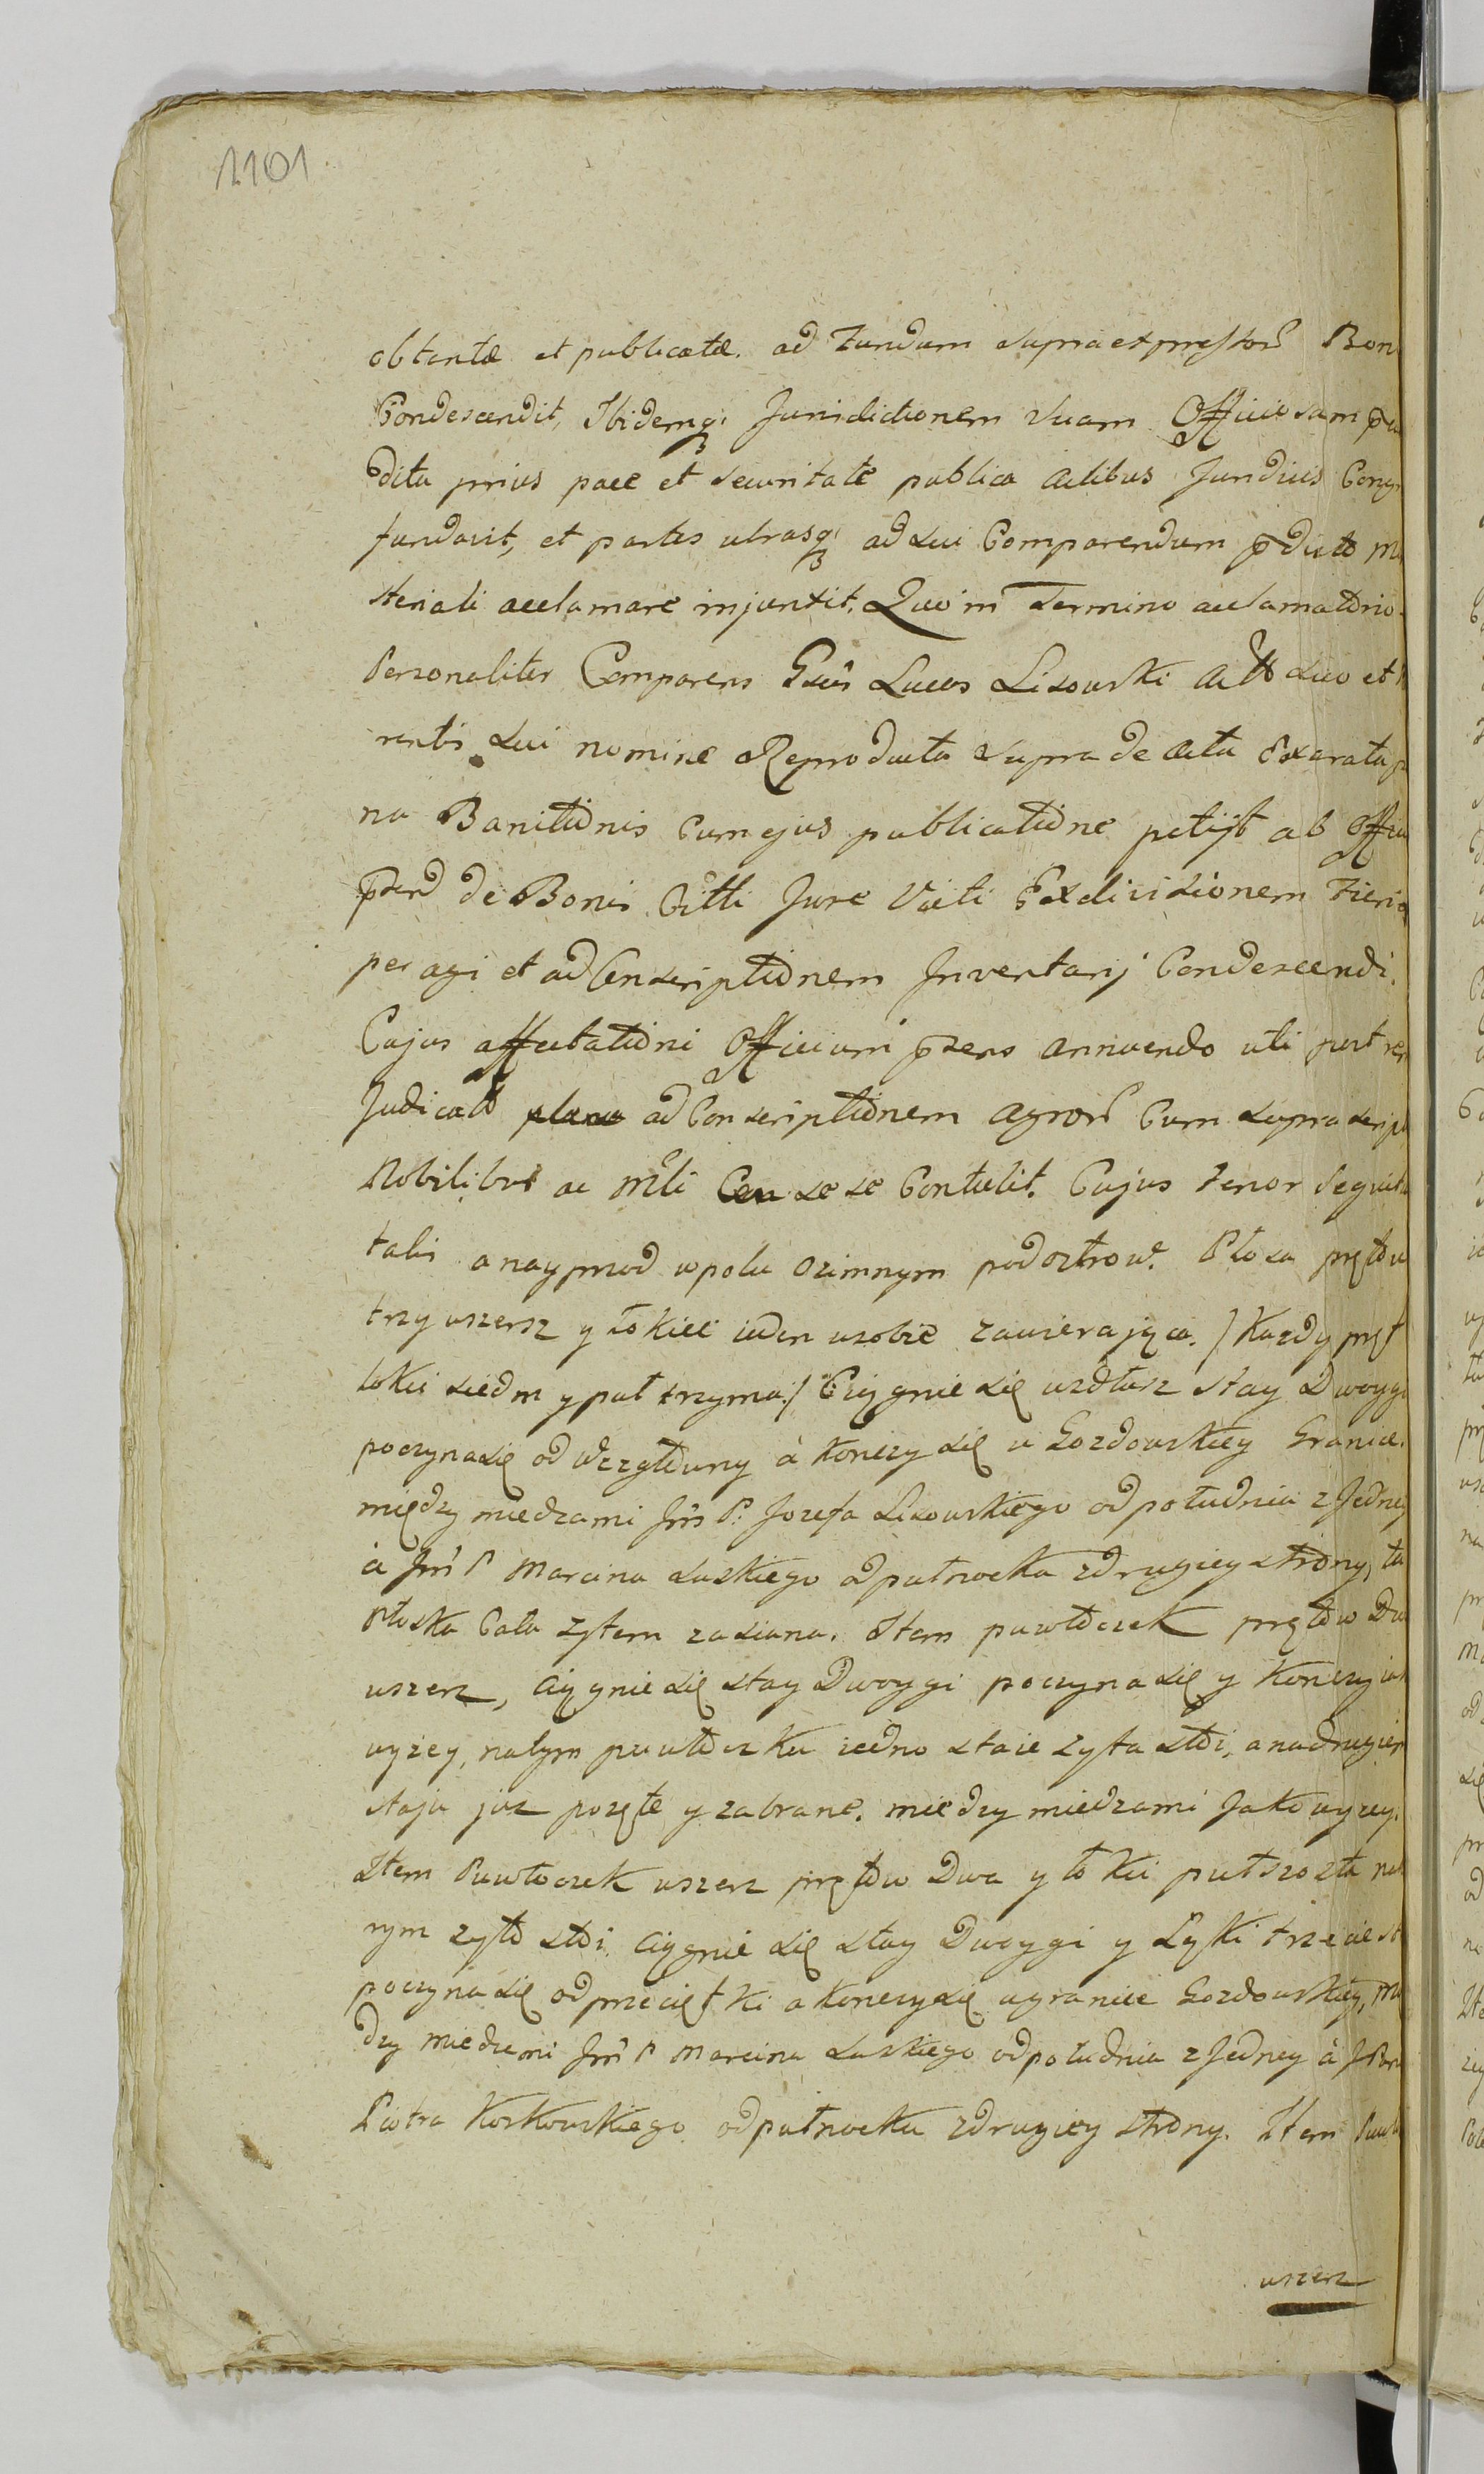 1101
obtentæ et publicatæ. ad Fundum supra expressorũ Bon
Condescendit, Ibidemq; Jurisdictionem suam Officiosam
dita prius pace et securitate publica actibus Jundicis
fundavit, et partes utrasq; ad sui Comparendum
steriali acclamare injunxit. Quo in Termino acclamatorio
Personaliter Comparens Gsus Lucas Lisowski suo et
rentis sui nomine Reproducta supra de acta Exarata
na Banitionis cum ejus publicatione petijt ab Officio
de Bonis Citti Jure Victi Exdivisionem Fieri
peragi et ad Conscriptionem Inventarij Condescendi.
Cujus affectationi Officium pñsens annuendo uti post rem
Judicatã ad Conscriptionem agrorũ Cum suprascrip
Nobilibus ac Mtli sese Contulit. Cujus tenor Sequit
talis a nayprzod w polu ozimnym pod ostrowe. Płosa prętow
trzy wszersz y łokiec ieden w sobie zawieraiąca. / Kazdy pręt
łokci siedm y puł trzyma:/ Ciągnie się wzdłusz stay Dwoygi
poczyna się od a Konczy się u Gozdowskiey Granice.
między miedzami Jm̃s P: Jozefa Lisowskiego od południa z Jedney
a Jm̃ P Marcina Łaskiego od pułnocka z drugiey strony, ta
Płoska Cała zytem zasiana. Item puwłoczek prętow Dw
wszerz, ciągnie się stay Dwoygi poczyna się y Konczy iak
wyzey, na tym puwłoczku iedno staie zyta stoi, a na drugiem
staju juz pozęte y zabrane. miedzy miedzami Jako wyzey.
Item Puwłoczek wszerz prętow Dwa y łokci pułszosta na
rym zyto stoi. ciągnie się stay Dwoygi y Łyski trzecie st
poczyna się od przeciętki a Konczy się u granice Gozdowskiey, mi
dzy miedzami Jm̃ P Marcina Łaskiego od południa z Jedney à J Pana
Piotra Koskowskiego od pułnocka z drugiey strony. Item Puwło
wszerz